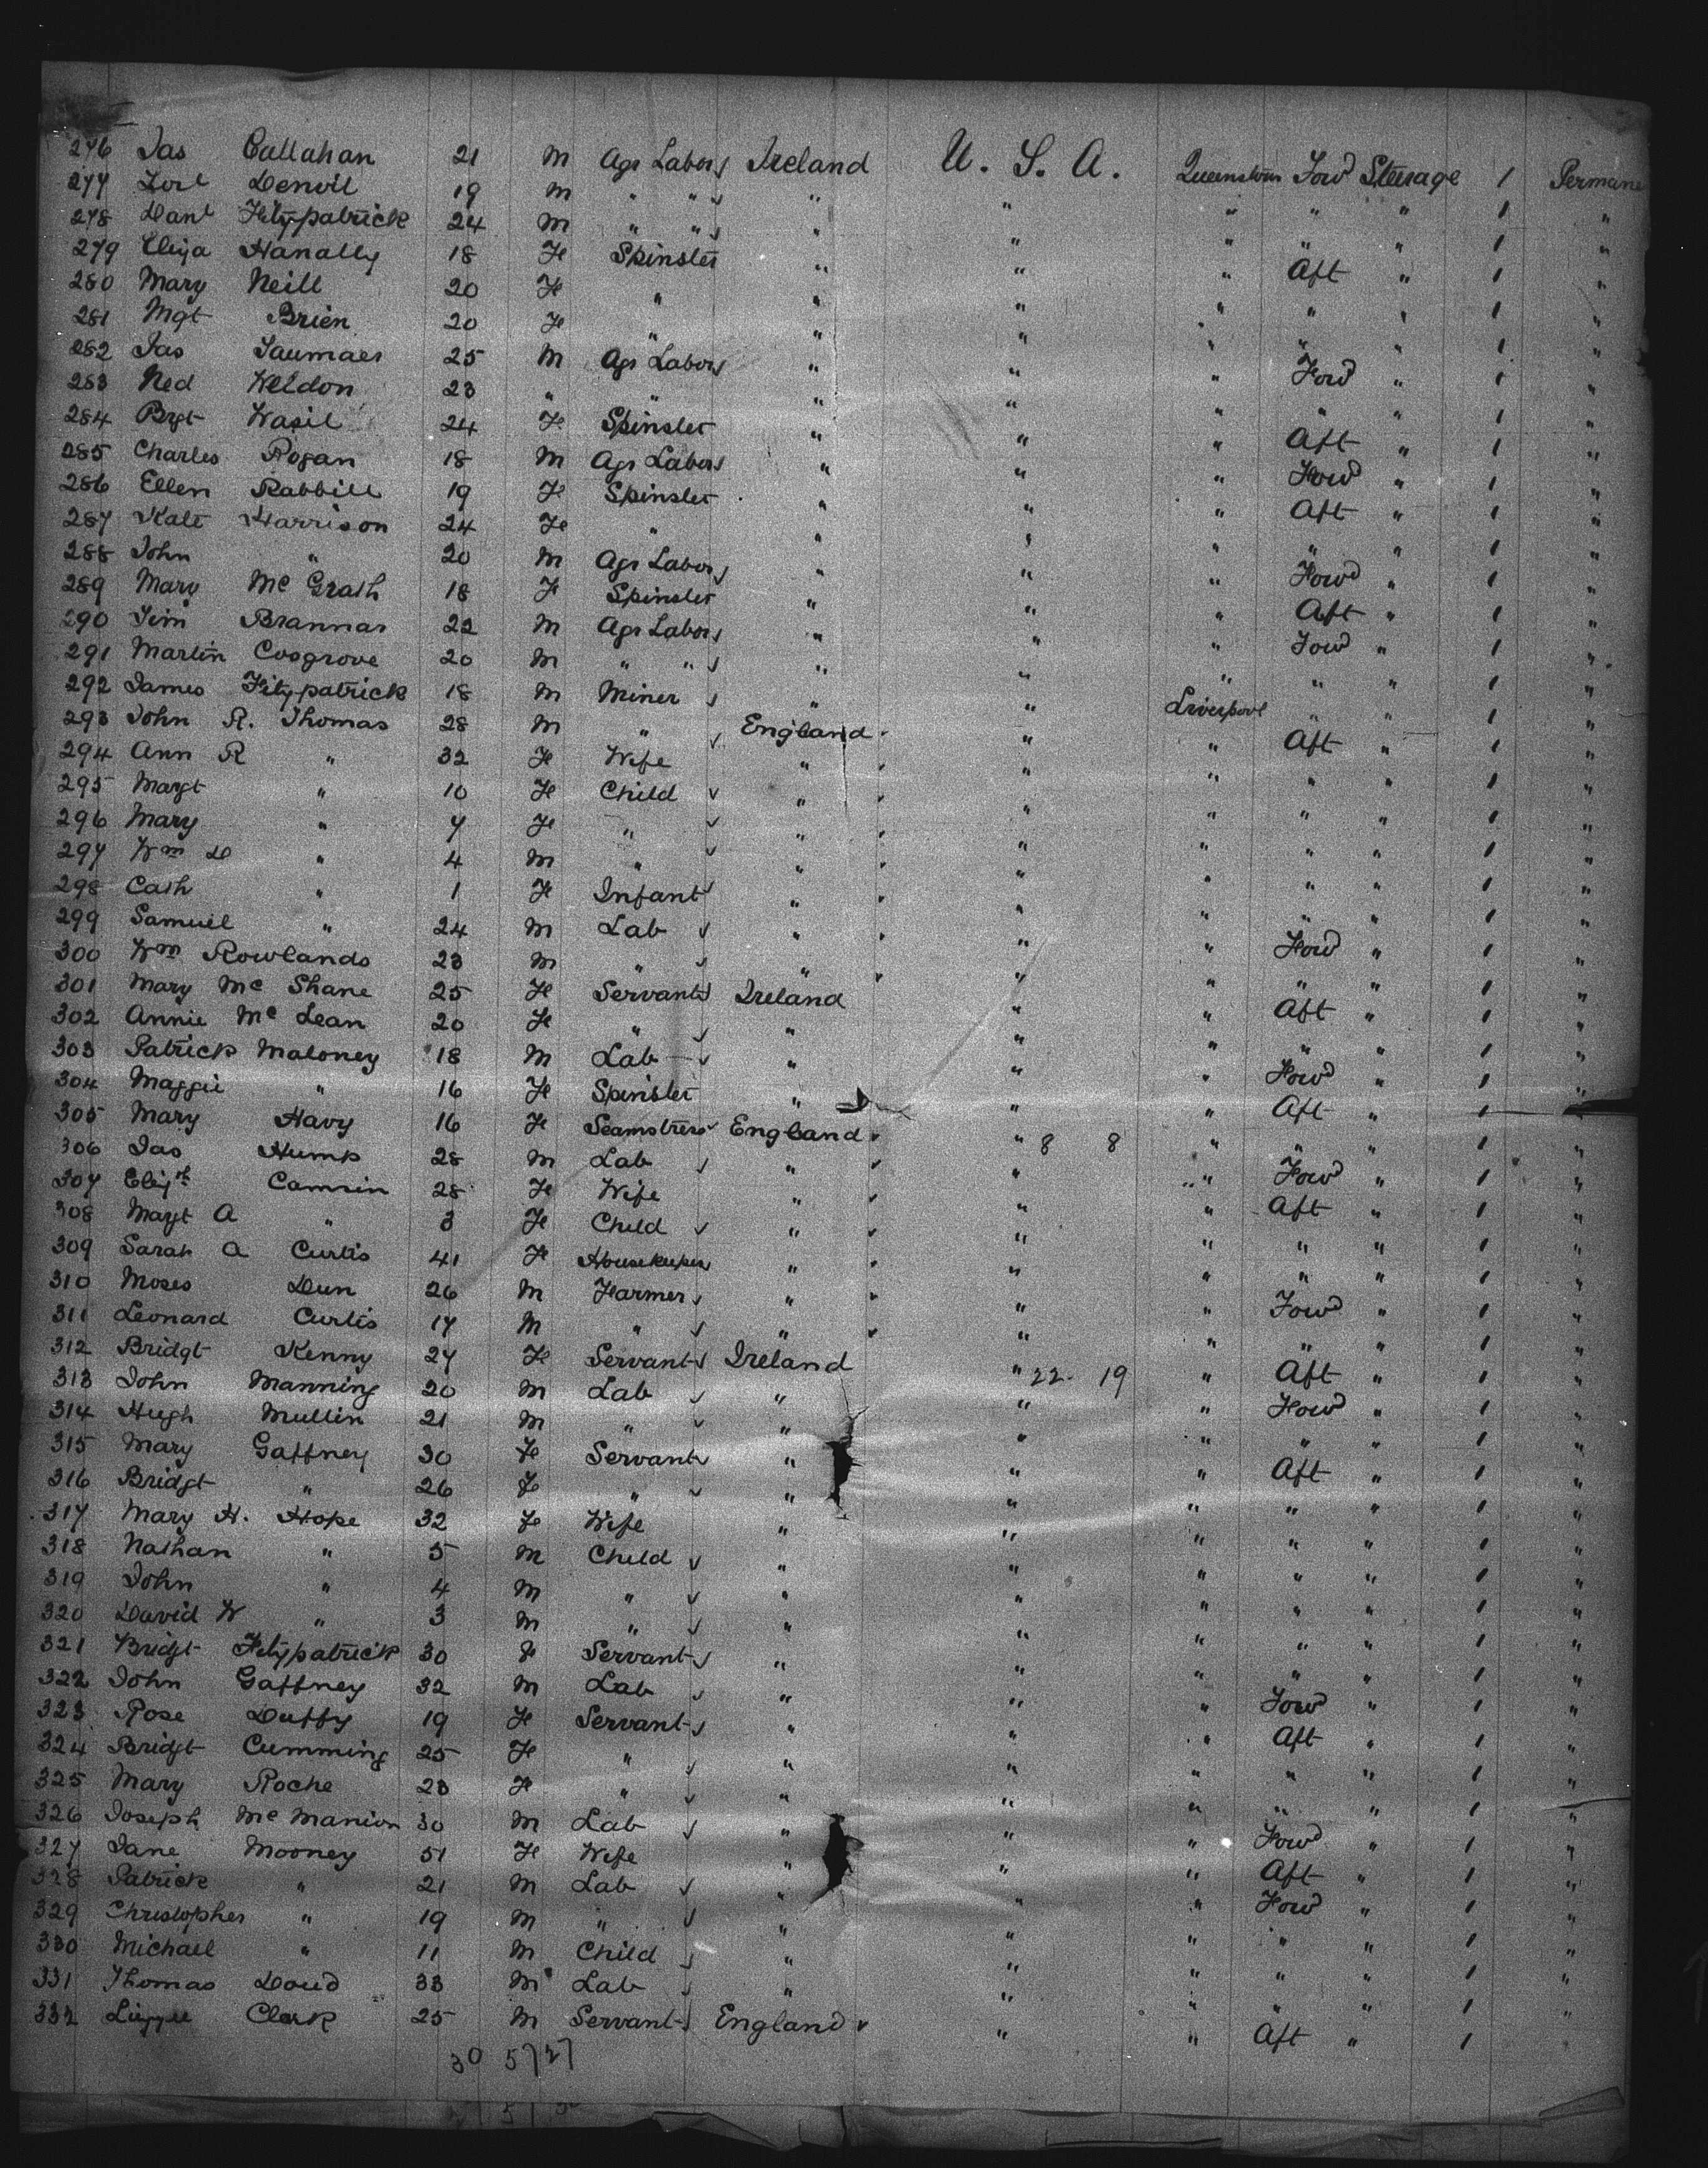 276 Jas Callahan 21 M Agr Labor Ireland U. S. A. Queenstown Forwd Steerage 1 Permane
277 Denvil 19 M " " " " " " " 1 "
278 Danl Fitzpatrick 24 M " " " " " " " 1 "
279 Eliza Hanally 18 Fe Spinster " " " Aft " 1 "
280 Mary Neill 20 Fe " " " " " " 1 "
281 Mgt Brien 20 Fe " " " " " " 1 "
282 Jas 25 M Agr Labor " " " Forwd " 1 "
283 Ned Weldon 23 " " " " " " " 1 "
284 Brgt 24 Fe Spinster " " " Aft " 1 "
285 Charles Rogan 18 M Agr Labor " " " Forwd " 1 "
286 Ellen Rabbitt 19 Fe Spinster " " " Aft " 1 "
287 Kate Harrison 24 Fe " " " " " " 1 "
288 John " 20 M Agr Labor " " " Forwd " 1 "
289 Mary McGrath 18 F Spinster " " " Aft " 1 "
290 Jim Brannar 22 M Agr Labor " " " Forwd " 1 "
291 Martin Cosgrove 20 M " " " " " " " 1 "
292 James Fitzpatrick 18 M Miner " " Liverpool " " 1 "
293 John R. Thomas 28 M " England " " Aft " 1 "
294 Ann R " 32 Fe Wife " " " " " 1 "
295 Margt " 10 Fe Child " " " " " 1 "
296 Mary " 7 Fe " " " " " " 1 "
297 Wm D " 4 M " " " " " " 1 "
298 Cath " 1 Fe Infant " " " " " 1 "
299 Samuel " 24 M Lab " " " Forwd " 1 "
300 Wm Rowlands 23 M " " " " " " 1 "
301 Mary Mc Shane 25 Fe Servant Ireland " " Aft " 1 "
302 Annie Mc Lean 20 Fe " " " " " " 1 "
303 Patrick Maloney 18 M Lab " " " Forwd " 1 "
304 Maggie " 16 Fe Spinster " " " Aft " 1 "
305 Mary Havy 16 Fe Seamstress England " 8 8 " " " 1 "
306 Jas Hump 28 M Lab " " " Forwd " 1 "
307 Elizth Camsin 28 Fe Wife " " " Aft " 1 "
308 Margt A " 3 Fe Child " " " " " 1 "
309 Sarah A Curtis 41 Fe Housekeeper " " " " " 1 "
310 Moses Dun 26 M Farmer " " " Forwd " 1 "
311 Leonard Curtis 17 M " " " " " " 1 "
312 Bridgt Kenny 27 Fe Servant Ireland " 22 19 " Aft " 1 "
313 John Manning 20 M Lab " " " Forwd " 1 "
314 Hugh Mullin 21 M " " " " " " 1 "
315 Mary Gaffney 30 Fe Servant " " " Aft " 1 "
316 Bridgt " 26 Fe " " " " " " 1 "
317 Mary H. Hope 32 Fe Wife " " " " " 1 "
318 Nathan " 5 M Child " " " " " 1 "
319 John " 4 M " " " " " " 1 "
320 David W " 3 M " " " " " " 1 "
321 Bridgt Fitzpatrick 30 Fe Servant " " " " " 1 "
322 John Gaffney 32 M Lab " " " Forwd " 1 "
323 Rose Duffy 19 Fe Servant " " " Aft " 1 "
324 Bridgt Cumming 25 Fe " " " " " " 1 "
325 Mary Roche 23 Fe " " " " " " 1 "
326 Joseph Mc Manion 30 M Lab " " " Forwd " 1 "
327 Jane Mooney 51 Fe Wife " " " Aft " 1 "
328 Patrick " 21 M Lab " " " Forwd " 1 "
329 Christopher " 19 M " " " " " " 1 "
330 Michael " 11 M Child " " " " " 1 "
331 Thomas Doud 33 M Lab " " " " " 1 "
332 Lizzie Clark 25 M Servant England " " Aft " 1
30 5727